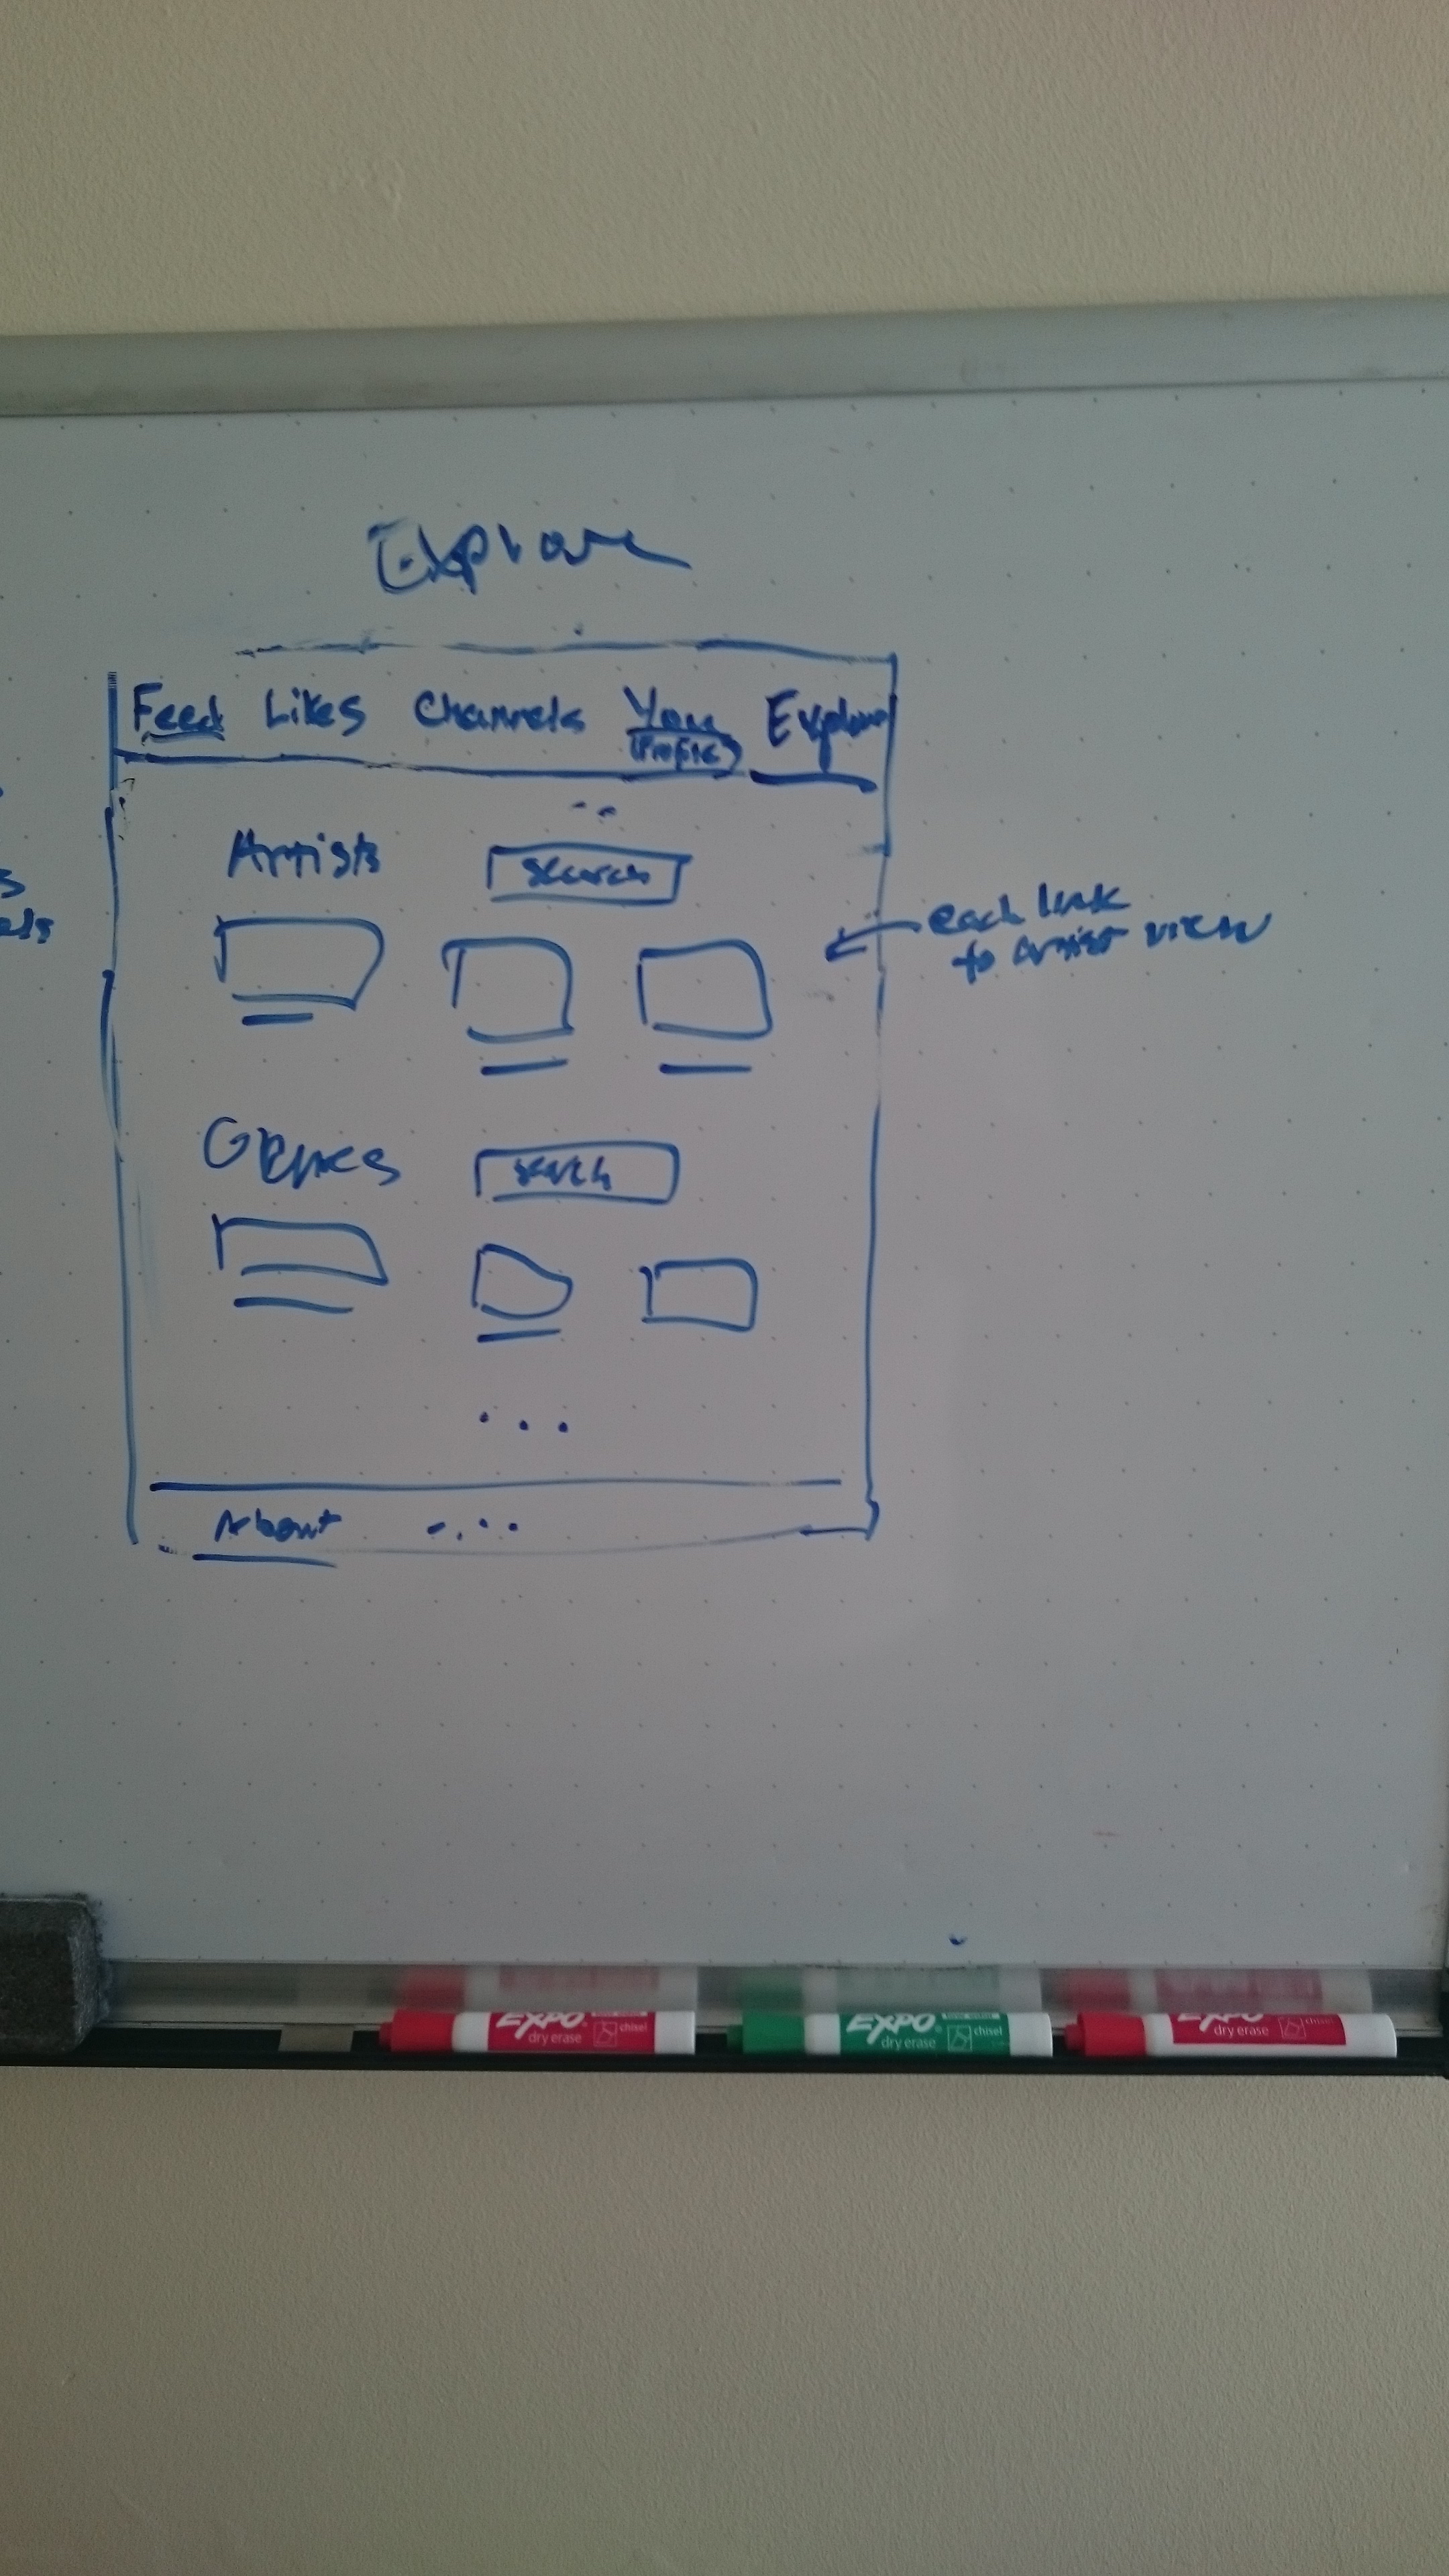 Explore
Feed Likes Channels You Explore
(Profile)
Artists search
each link
to artist view
Genres search
...
About ....
EXPO dry erase chisel
EXPO dry erase chisel
EXPO dry erase chisel